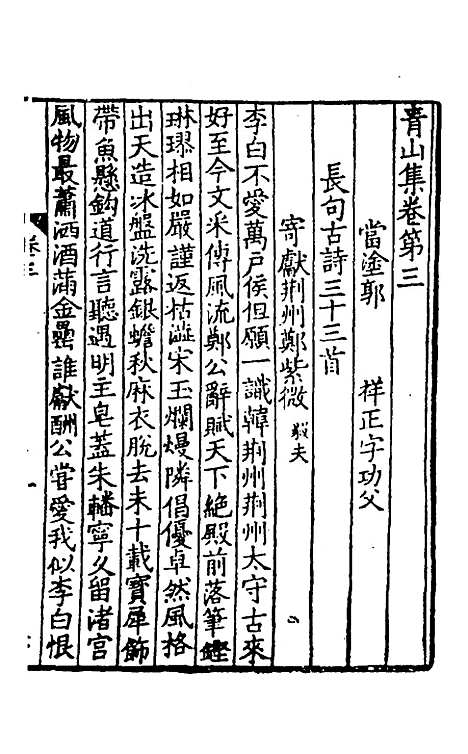 青山集卷第三
當塗郭 祥正字功父
長句古詩三十三首
寄獻荆州鄭紫微 毅夫
李白不愛萬戶侯但願一識韓荆州荆州太守古來
好至今文采傳風流鄭公辭賦天下絶殿前落筆鏗
琳璆相如嚴謹返枯澁宋玉爛熳隣倡優卓然風格
出天造冰盤洗露銀蟾秋麻衣脫去未十載寶犀飾
帶魚懸鈎道行言聽遇明主皂蓋朱轓寧久留渚宫
風物最蕭洒酒滿金罍誰獻酬公甞愛我似李白恨
卷三